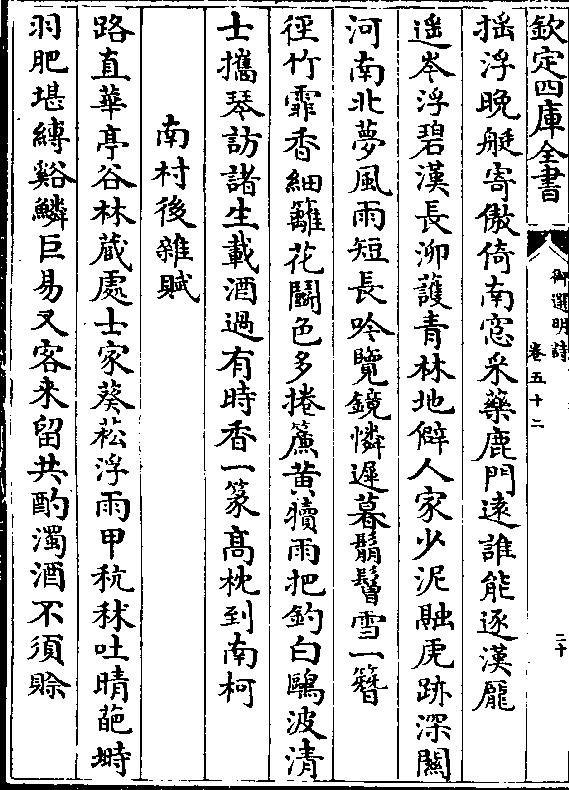 欽定四庫全書
御選明詩
卷五十二
二十
揺浮晩艇寄傲倚南窓釆藥鹿門逺誰能逐漢龎
遥岑浮碧漢長泖護青林地僻人家少泥融虎跡深闗
河南北夢風雨短長吟覽鏡憐遲暮鬅鬙雪一簪
徑竹霏香細籬花鬭色多捲簾黄犢雨把釣白鷗波清
士攜琴訪諸生載酒過有時香一篆髙枕到南柯
南村後雜賦
路直華亭谷林蔵處士家葵菘浮雨甲秔秫吐晴葩塒
羽肥堪縛谿鱗巨易叉客来留共酌濁酒不須賒